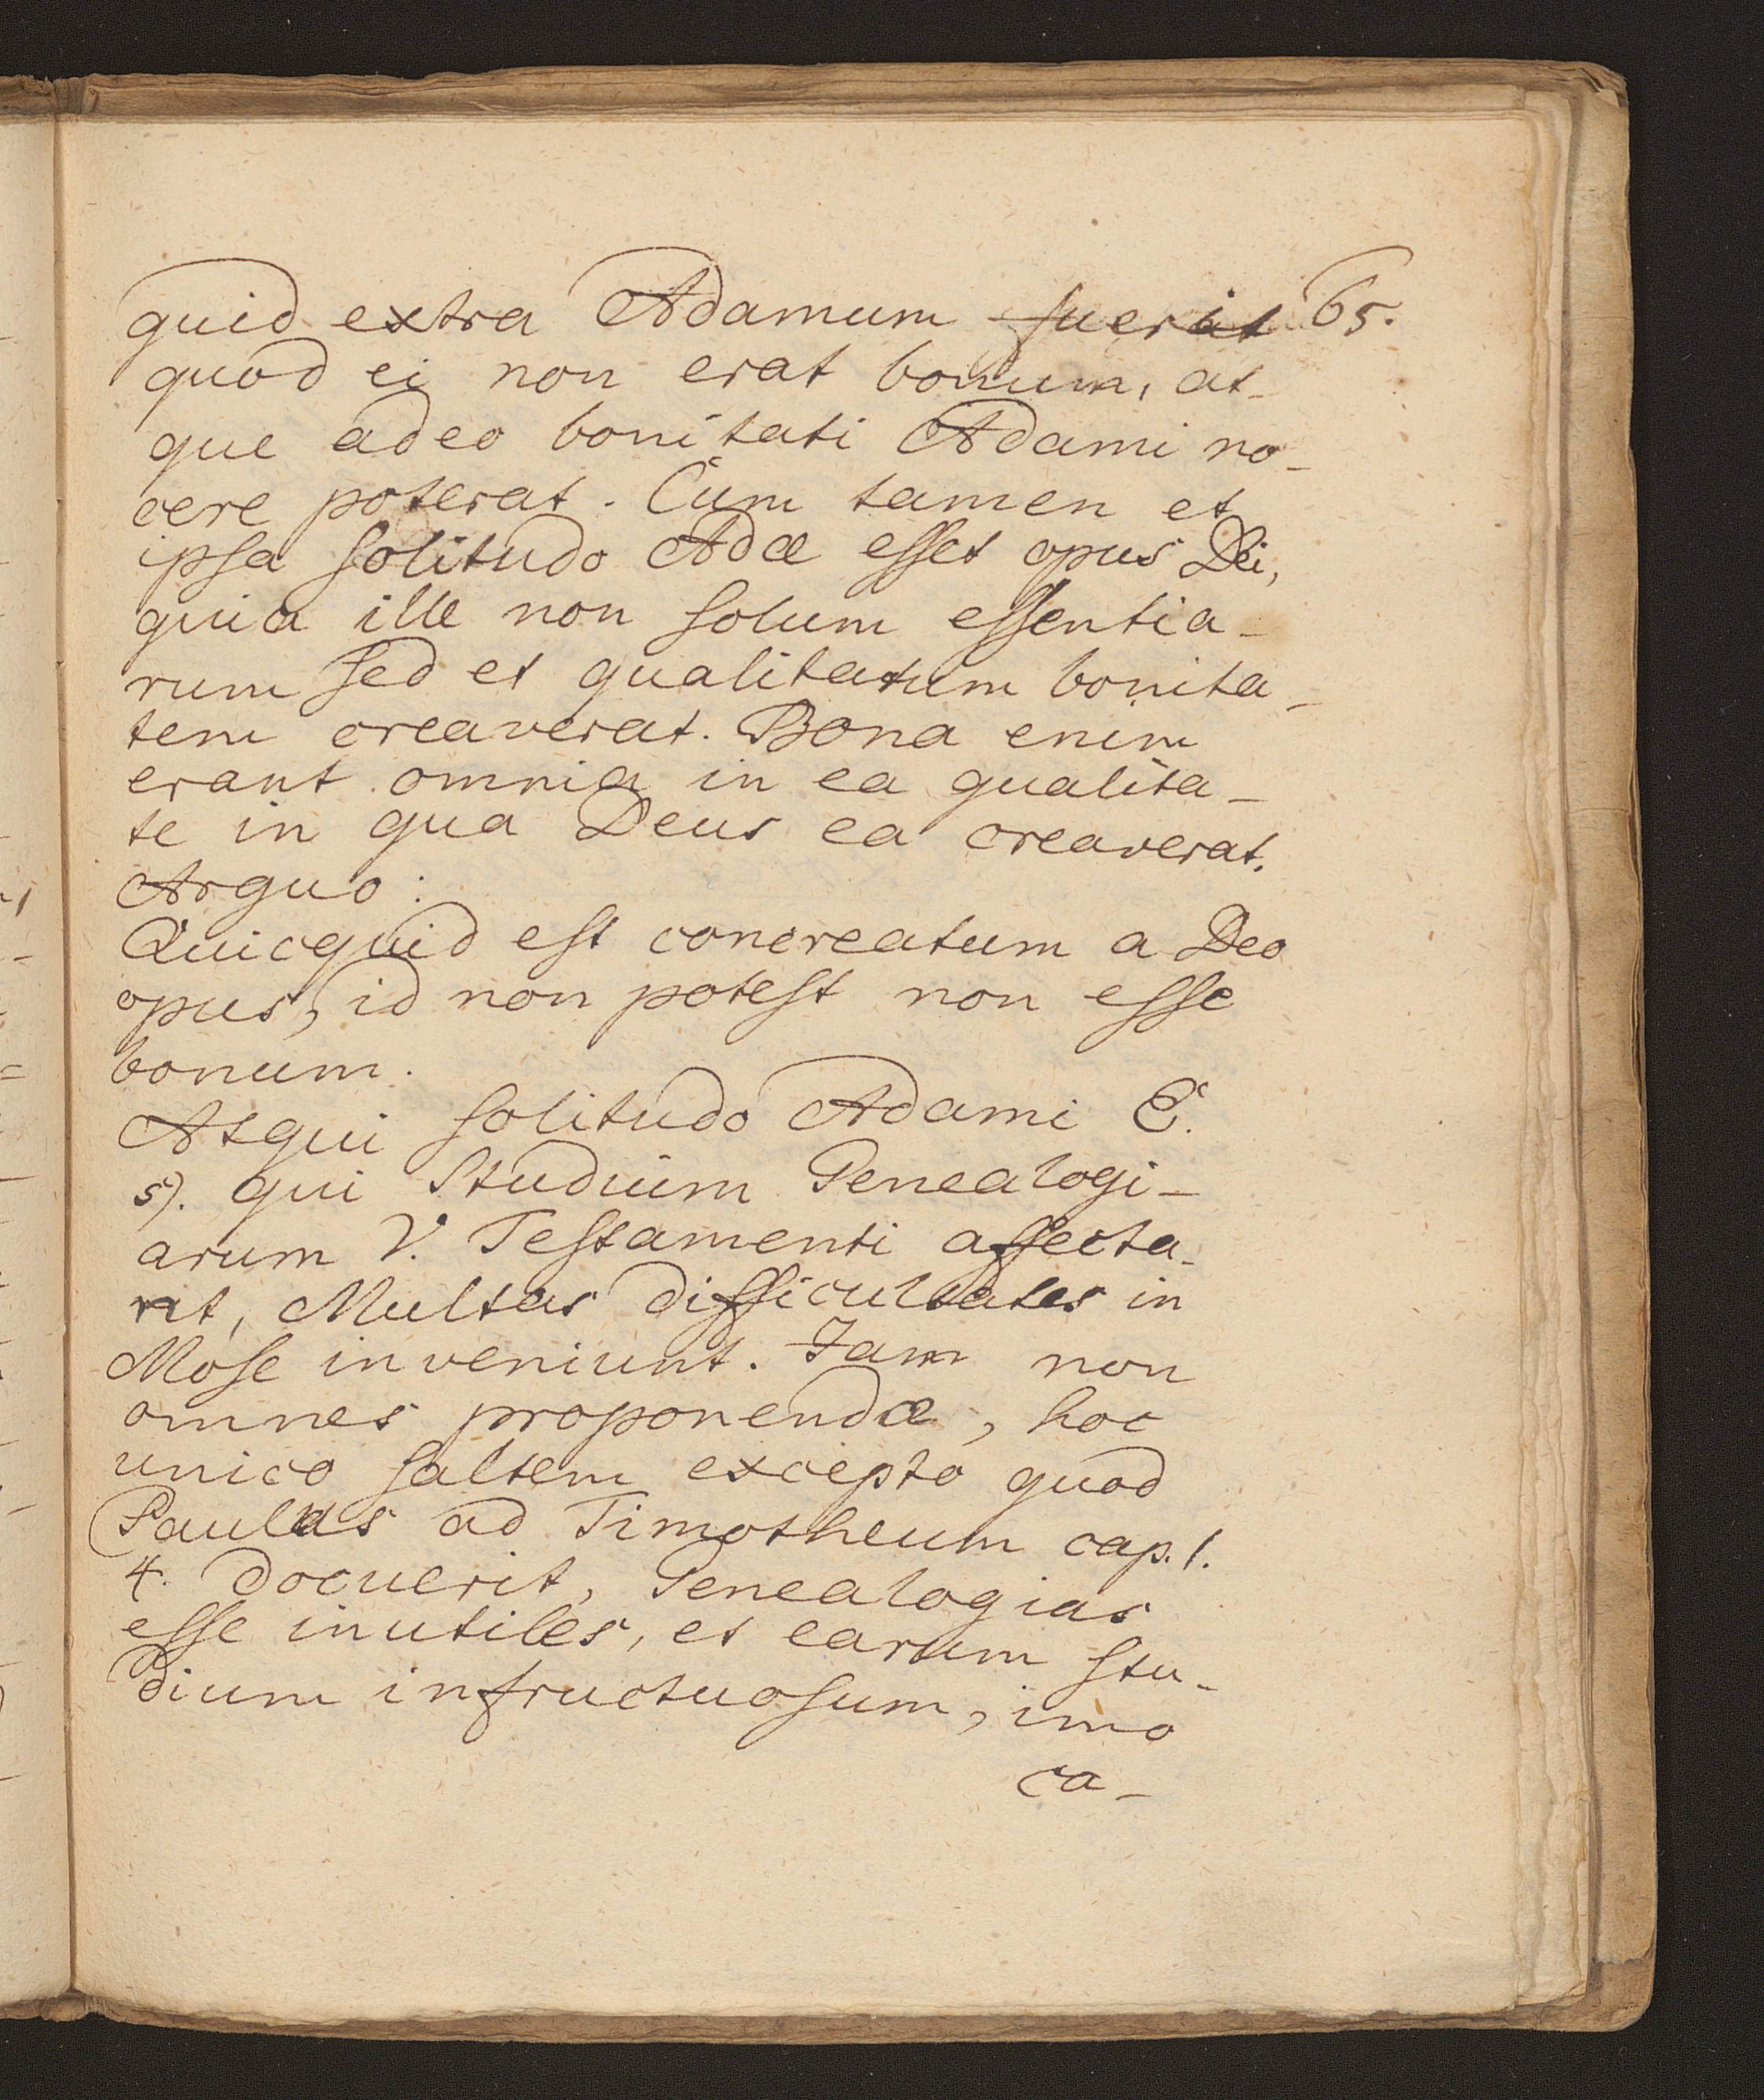 quid extra Adamum fuerit 65.
quod ei non erat bonum, at-
que adeo bonitati Adami no-
cere poterat. Cum tamen et
ipsa solitudo Adæ esset opus Dei,
quia ille non solum essentia-
rum sed et qualitatum bonita-
tem creaverat. Bona enim
erant omnia in ea qualita-
te in qua Deus ea creaverat.
Arguo:
Quicquid est concreatum a Deo
opus, id non potest non esse
bonum.
Atqui solitudo Adami E.
5). qui Studium Genealogi-
arum V. Testamenti affecta-
rit, Multas difficultates in
Mose inveniunt. Jam non
omnes proponendæ, hoc
unico saltem excepto quod
Paulus ad Timotheum cap. 1.
4. docuerit, Genealogias
esse inutiles, et earum stu-
dium infructuosum, imo
ca-